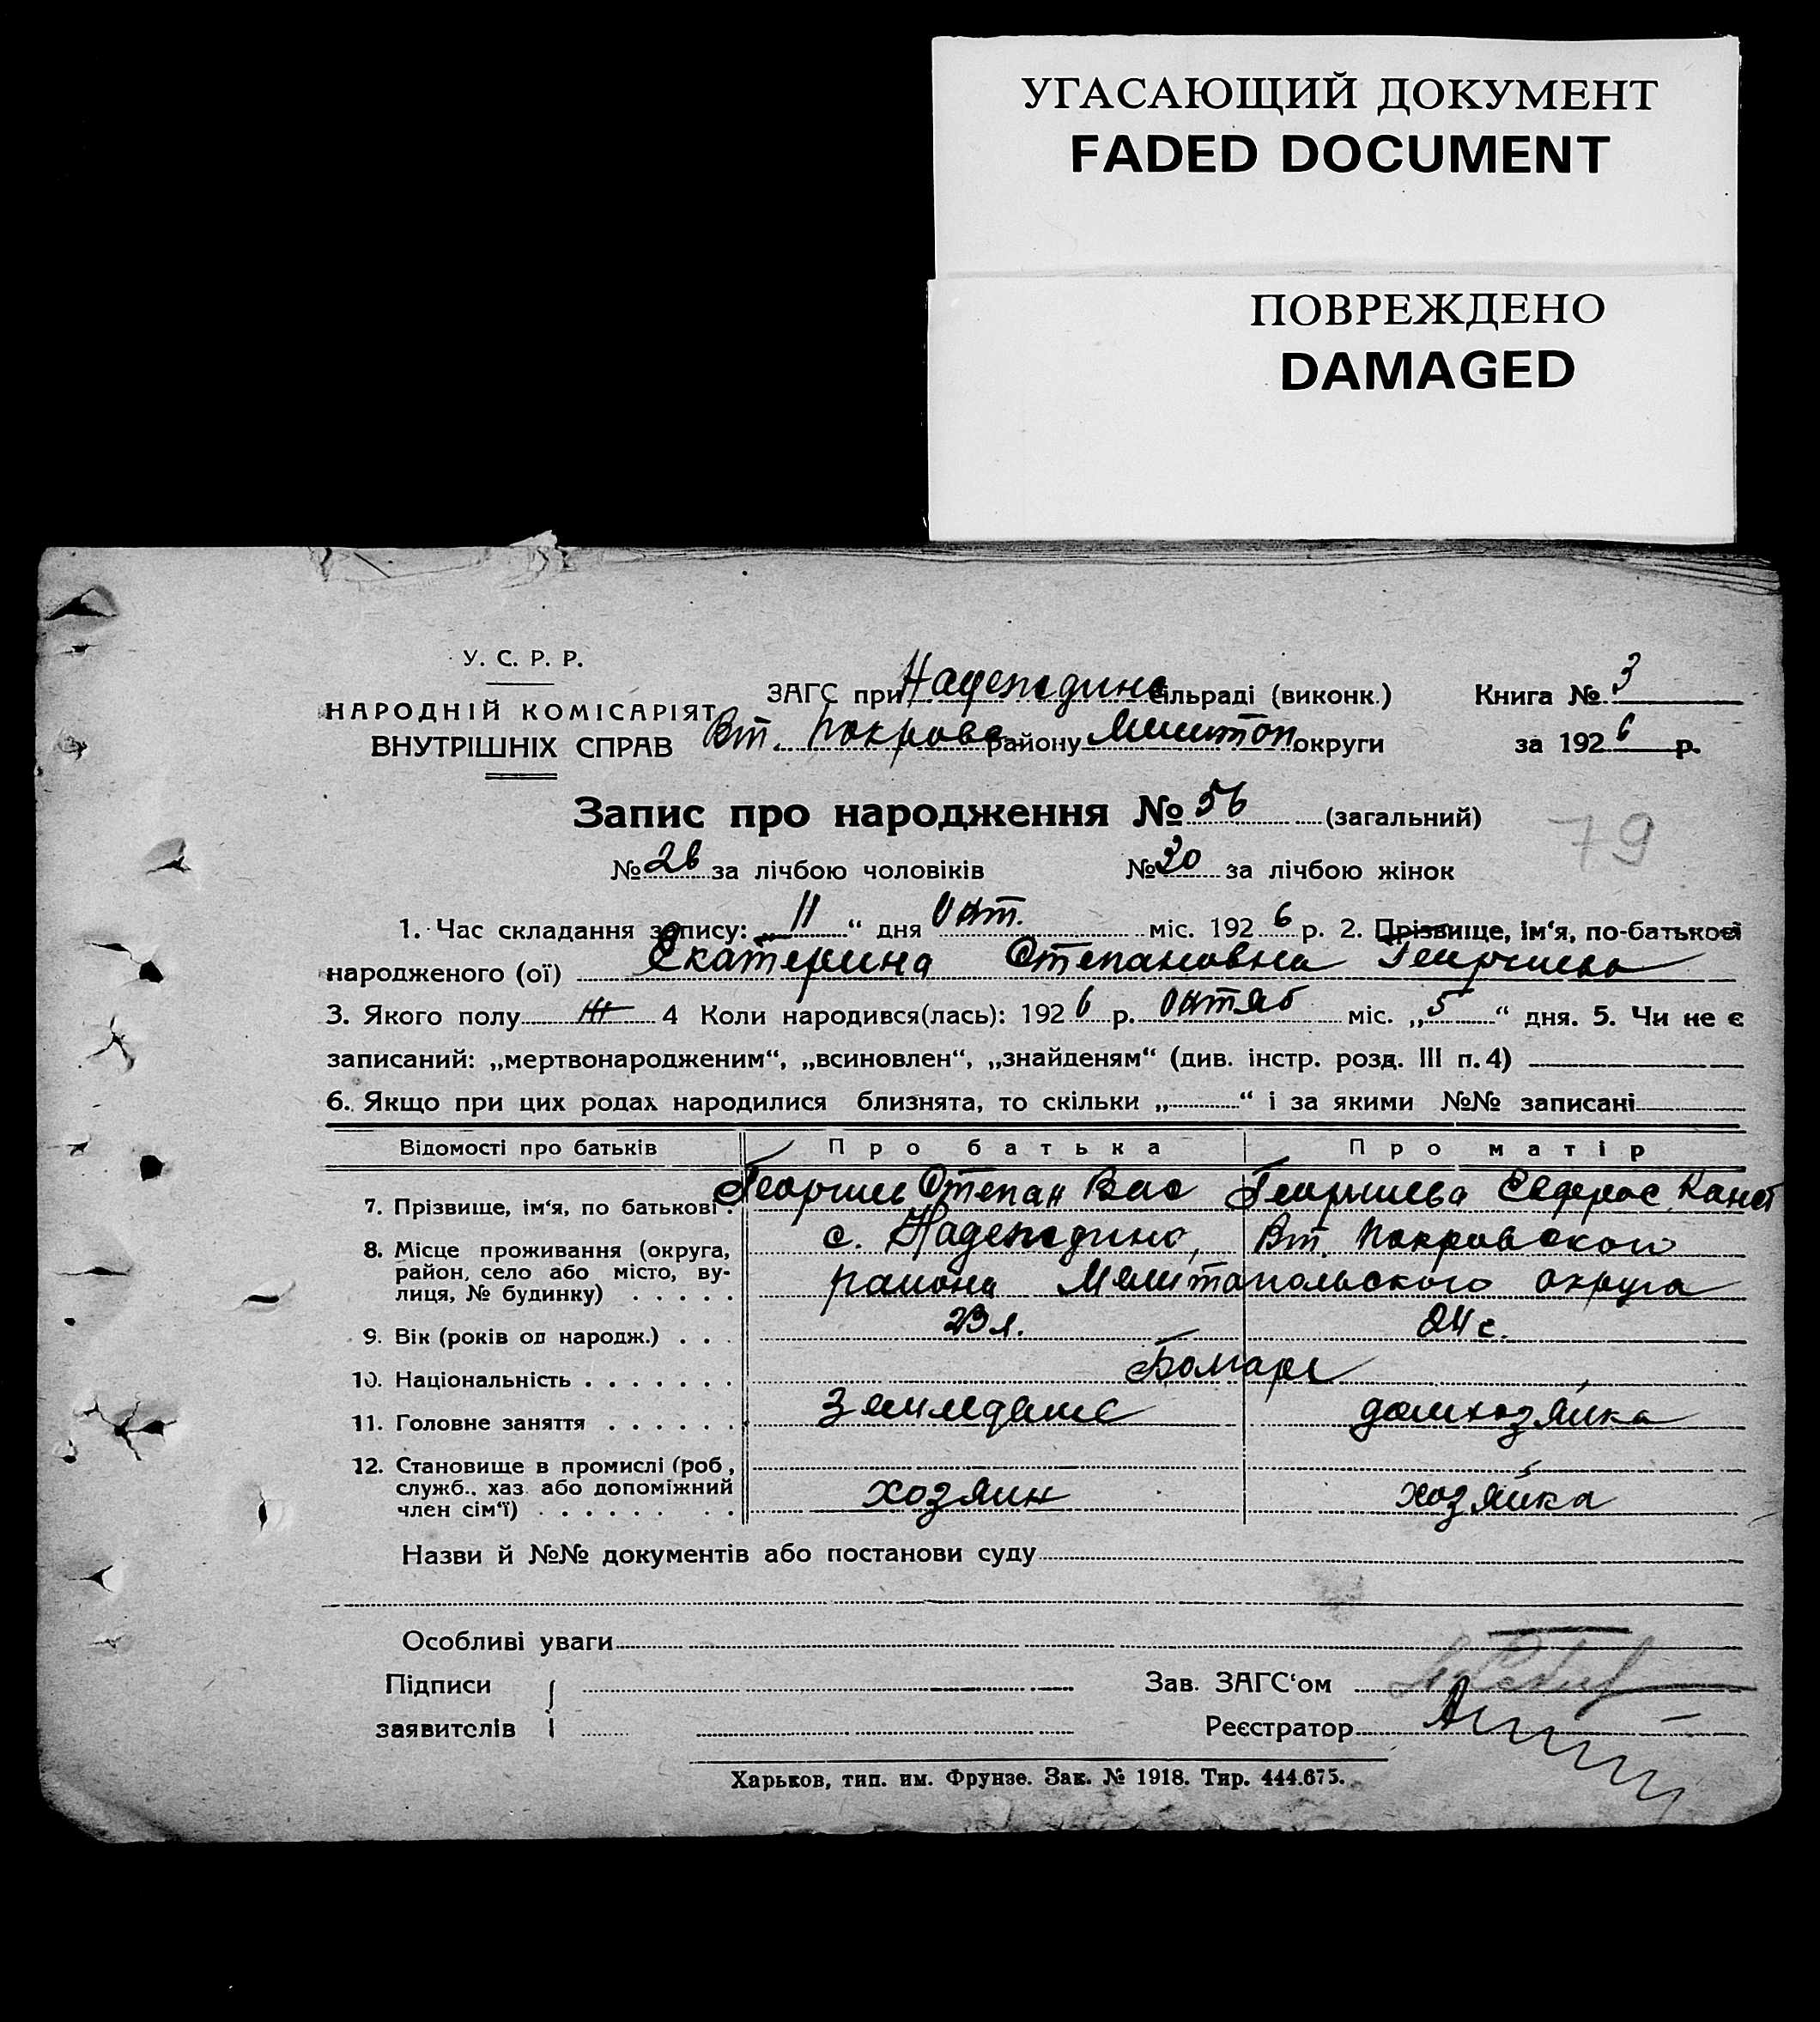 УГАСАЮЩИЙ ДОКУМЕНТ
FADED DOCUMENT
ПОВРЕЖДЕНО
DAMAGED
У. С. Р. Р.
НАРОДНІЙ КОМІСАРІЯТ
ВНУТРІШНІХ СПРАВ
ЗАГС при Надеждинс сільраді (виконк.) Книга № 3
Вт. Покровс району Мелитоп округи за 1926 р.
Запис про народження № 56 (загальний)
79
№ 26 за лічбою чоловіків № 30 за лічбою жінок
1. Час складання запису: „11“ дня Окт. міс. 1926 р. 2. Прізвище, ім‘я, по-батькові
народженого (ої) Екатерина Степановна Георгиева
3. Якого полу Ж 4 Коли народився(лась): 1926 р. Октяб міс. „5“ дня. 5. Чи не є
записаний: „мертвонародженим“, „всиновлен“, „знайденям“ (див. інстр. розд. III п. 4)
6. Якщо при цих родах народилися близнята, то скільки „ “ і за якими №№ записані
Відомості про батьків Про батька Про матір
7. Прізвище, ім‘я, по батькові Георгиев Степан Вас Георгиева Евфрос. Конст
8. Місце проживання (округа, район, село або місто, вулиця, № будинку) с. Надеждино, Вт. Покровского
района Мелитопольского округа
9. Вік (років од народж.) 23 л. 24 г.
10. Національність Болгаре
11. Головне заняття Земледелие домхозяйка
12. Становище в промислі (роб, служб., хаз. або допоміжний член сім‘ї) хозяин хозяйка
Назви й №№ документів або постанови суду
Особливі уваги
Підписи Зав. ЗАГС‘ом
заявителів Реєстратор
Харьков, тип. им. Фрунзе. Зак. № 1918. Тир. 444.675.